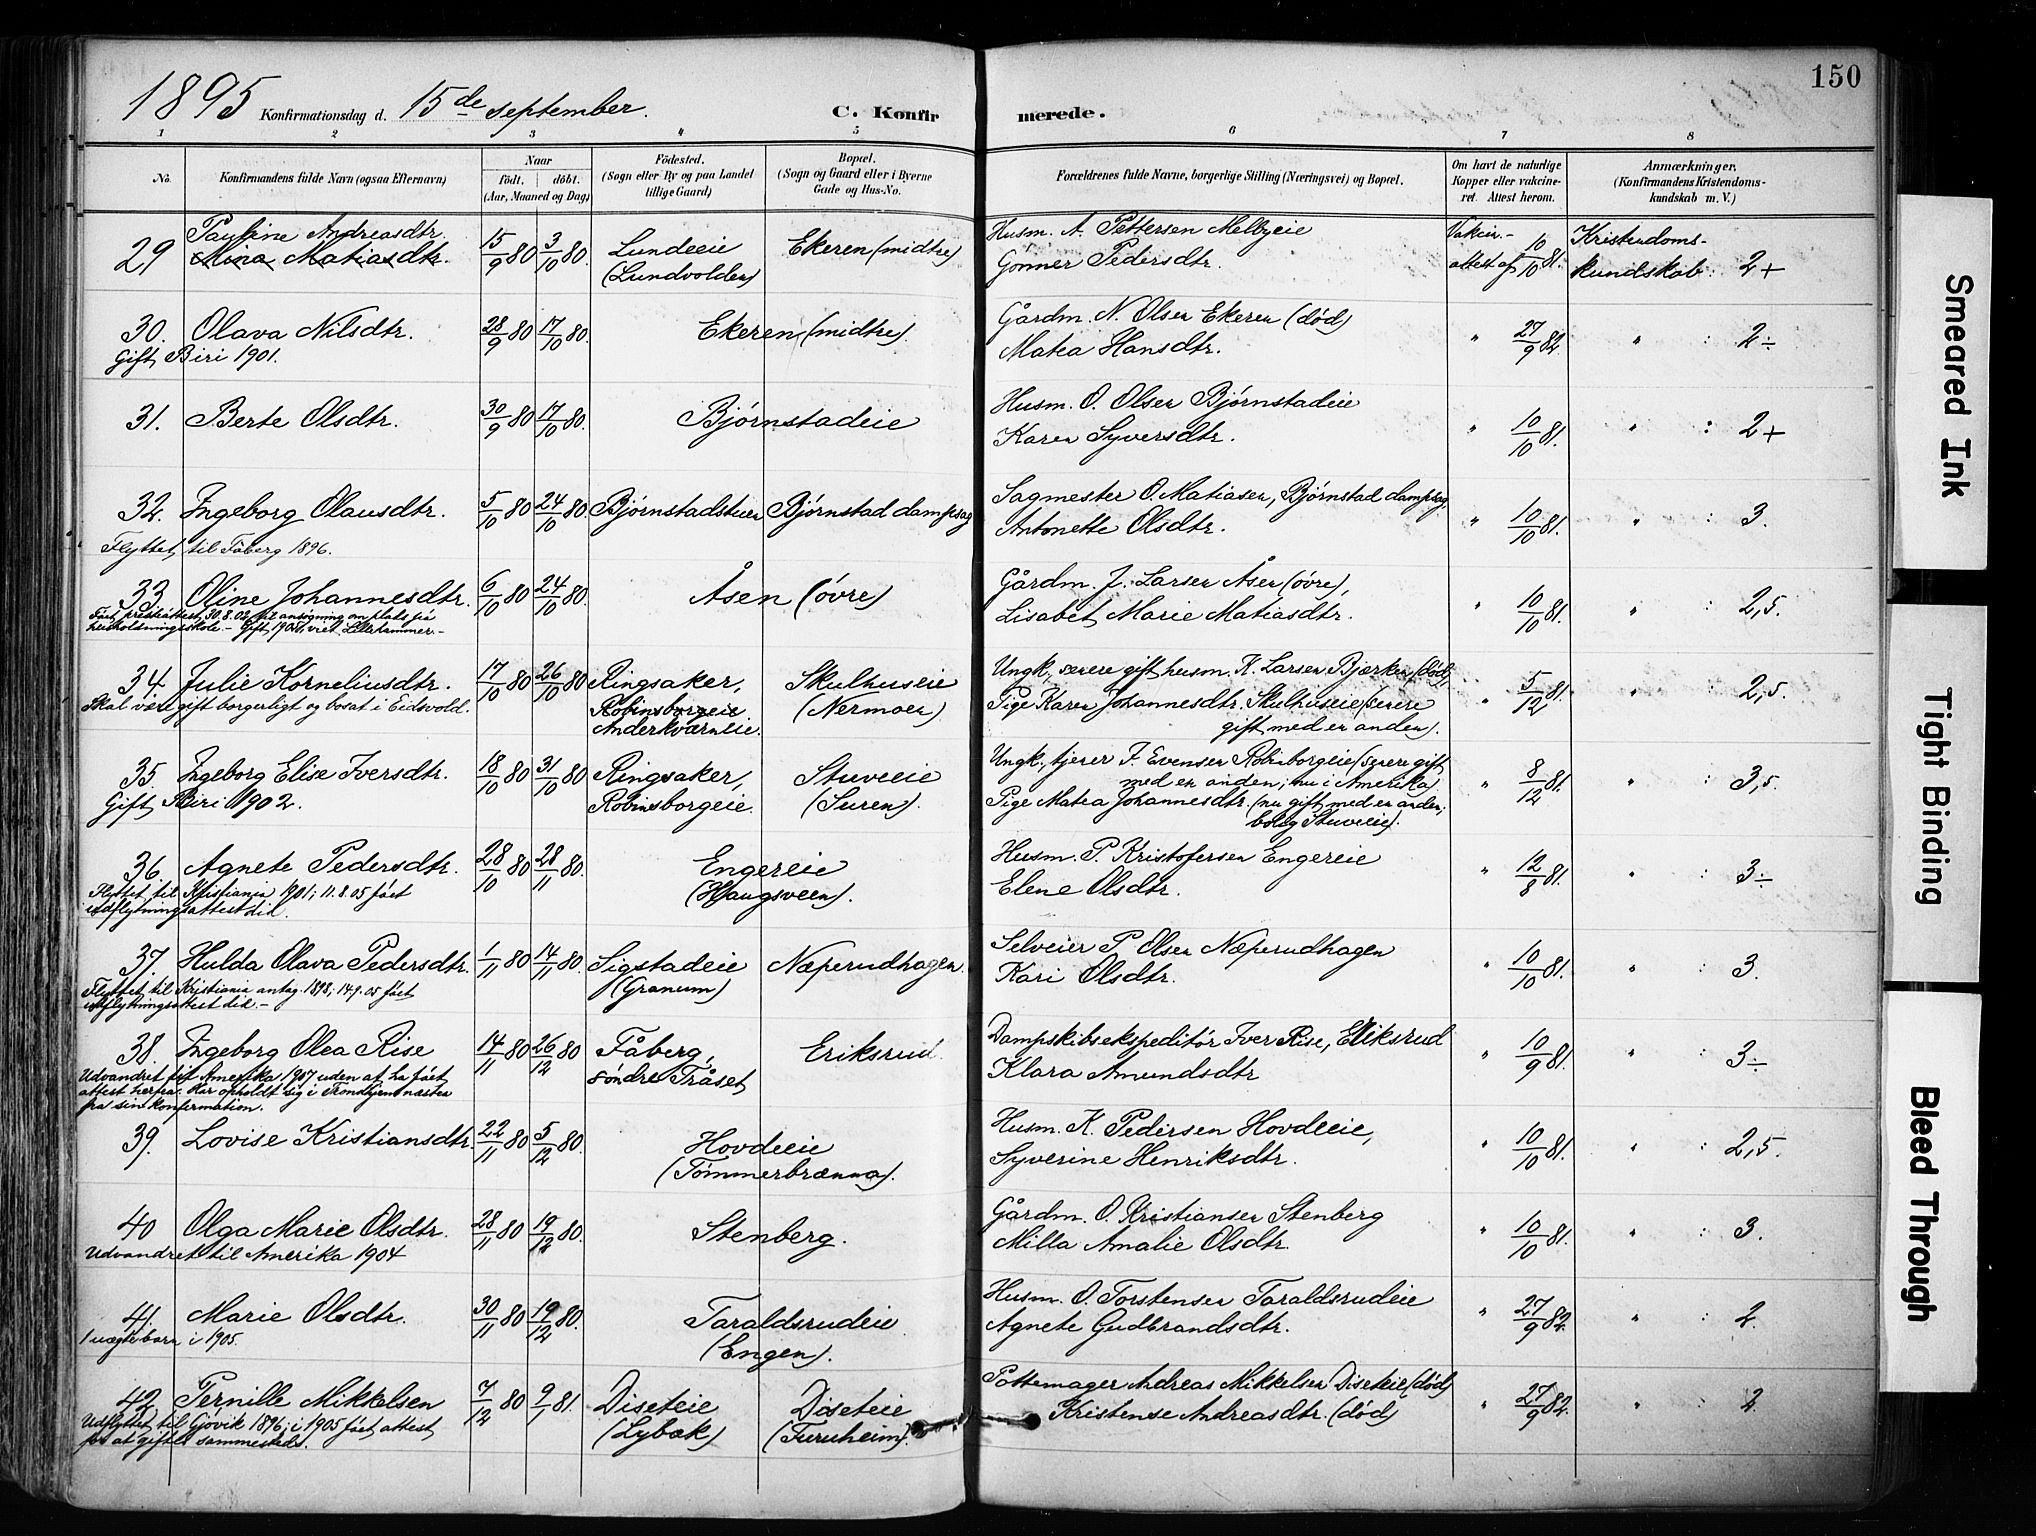 150
1895 Konfirmationsdag d. 15de september. C. Konfirmerede.
1 2 3 4 5 6 7 8
No. Konfirmandens fulde Navn (ogsaa Efternavn) Naar født. døbt. (Aar, Maaned og Dag) Födested. (Sogn eller By og paa Landet tillige Gaard) Bopæl. (Sogn og Gaard eller i Byerne Gade og Hus-No. Forældrenes fulde Navne, borgerlige Stilling (Næringsvei) og Bopæl. Om havt de naturlige Kopper eller vakcineret. Attest herom. Anmærkninger. (Konfirmandens Kristendomskundskab m. V.)
29 Pauline Andreasdtr. 15/9 80 3/10 80. Lundeeie Ekeren (midtre) Husm. A. Pettersen Melbyeie Vakcin.- Kristendoms-
Mina Matiasdtr. (Lundvolden) Gönner Pedersdtr. attest af 10/10 81. kundskab: 2+
30. Olava Nilsdtr. 28/9 80 17/10 80. Ekeren (midtre). Gårdm. N. Olsen Ekeren (død) " 27/9 82 " : 2÷
Gift, Biri 1901. Matea Hansdtr.
31. Berte Olsdtr. 30/9 80 17/10 80. Bjørnstadeie Husm. O. Olsen Bjørnstadeie
Karen Syversdtr. " 10/10 81. " : 2+
32. Ingeborg Olausdtr. 5/10 80 24/10 80. Bjørnstadstuen Bjørnstad dampsag Sagmester O. Matiasen, Bjørnstad dampsag,
Flyttet til Fåberg 1896. Antonette Olsdtr. " 10/10 81. " : 3.
33. Oline Johannesdtr. 6/10 80 24/10 80. Åsen (øvre) Gårdm. J. Larsen Åsen (øvre),
Fået prestattest 30.8.02 til ansøgning om plads på Lisabet Marie Matiasdtr. " 10/10 81. " : 2,5.
husholdningsskole. - Gift 1905, viet Lillehammer. -
34. Julie Korneliusdtr. 17/10 80 26/10 80 Ringsaker, Skulhuseie Ungk., senere gift husm. K. Larsen Bjerken (død),
Skal være gift borgerligt og bosat i Eidsvold. Robinsborgeie (Nermoen) Pige Karen Johannesdtr. Skulhuseie (senere " 5/12 81. " : 2,5.
Anderkværneie. gift med en anden).
35. Ingeborg Elise Iversdtr. 18/10 80 31/10 80 Ringsaker, Stuveeie Ungk., tjener I. Evensen Robinborgeie (senere gift
Gift, Biri 1902. Robinsborgeie. (Suren). med en anden; nu i Amerika) " 8/12 81. " : 3,5.
Pige Matea Johannesdtr. (nu gift med en anden;
bolig Stuveeie).
36. Agnete Pedersdtr. 28/10 80 28/11 80. Engereie Husm. P. Kristofersen Engereie " 12/8 81. " : 3÷
Flyttet til Kristiania 1901; 11.8.05 fået (Haugsveen). Elene Olsdtr.
udflytningsattest did.
37. Hulda Olava Pedersdtr. 1/11 80 14/11 80. Sigstadeie Næperudhagen. Selveier P. Olsen Næperudhagen
Flyttet til Kristiania antag. 1898; 14.9.05 fået (Granum) Kari Olsdtr. " 10/10 81. " : 3.
udflytningsattest did. -
38. Ingeborg Olea Rise 14/11 80 26/12 80 Fåberg, Eriksrud. Dampskibsekspeditör Iver Rise, Eriksrud
Udvandret til Amerika 1907 uden at ha fået søndre Tråset Klara Amundsdtr " 10/9 81. " : 3÷
attest herfra. Har opholdt sig i Trondhjem næsten
fra sin konfirmation.
39. Lovise Kristiansdtr. 22/11 80 5/12 80. Hovdeeie Husm. K. Pedersen Hovdeeie,
(Tømmerbrænna). Syverine Henriksdtr. " 10/10 81. " : 2,5.
40 Olga Marie Olsdtr. 28/11 80 19/12 80. Stenberg. Gårdm. O. Kristiansen Stenberg
Udvandret til Amerika 1904 Milla Amalie Olsdtr. " 10/10 81. " : 3.
41. Marie Olsdtr. 30/11 80 19/12 80. Taraldsrudeie Husm. O. Torstensen Taraldsrudeie
1 uægte barn i 1905. (Engen). Agnete Gudbrandsdtr. " 27/9 82. " : 2.
42. Pernille Mikkelsen 7/12 80 9/1 81. Diseteie Diseteie Pottemager Andreas Mikkelsen Diseteie (død)
Udflyttet til Gjøvik 1896; i 1905 fået attest (Lybæk) (Furuheim). Kristense Andreasdtr. (død) " 27/9 82. " : 2.
for at giftes sammesteds.
Smeared Ink
Tight Binding
Bleed Through